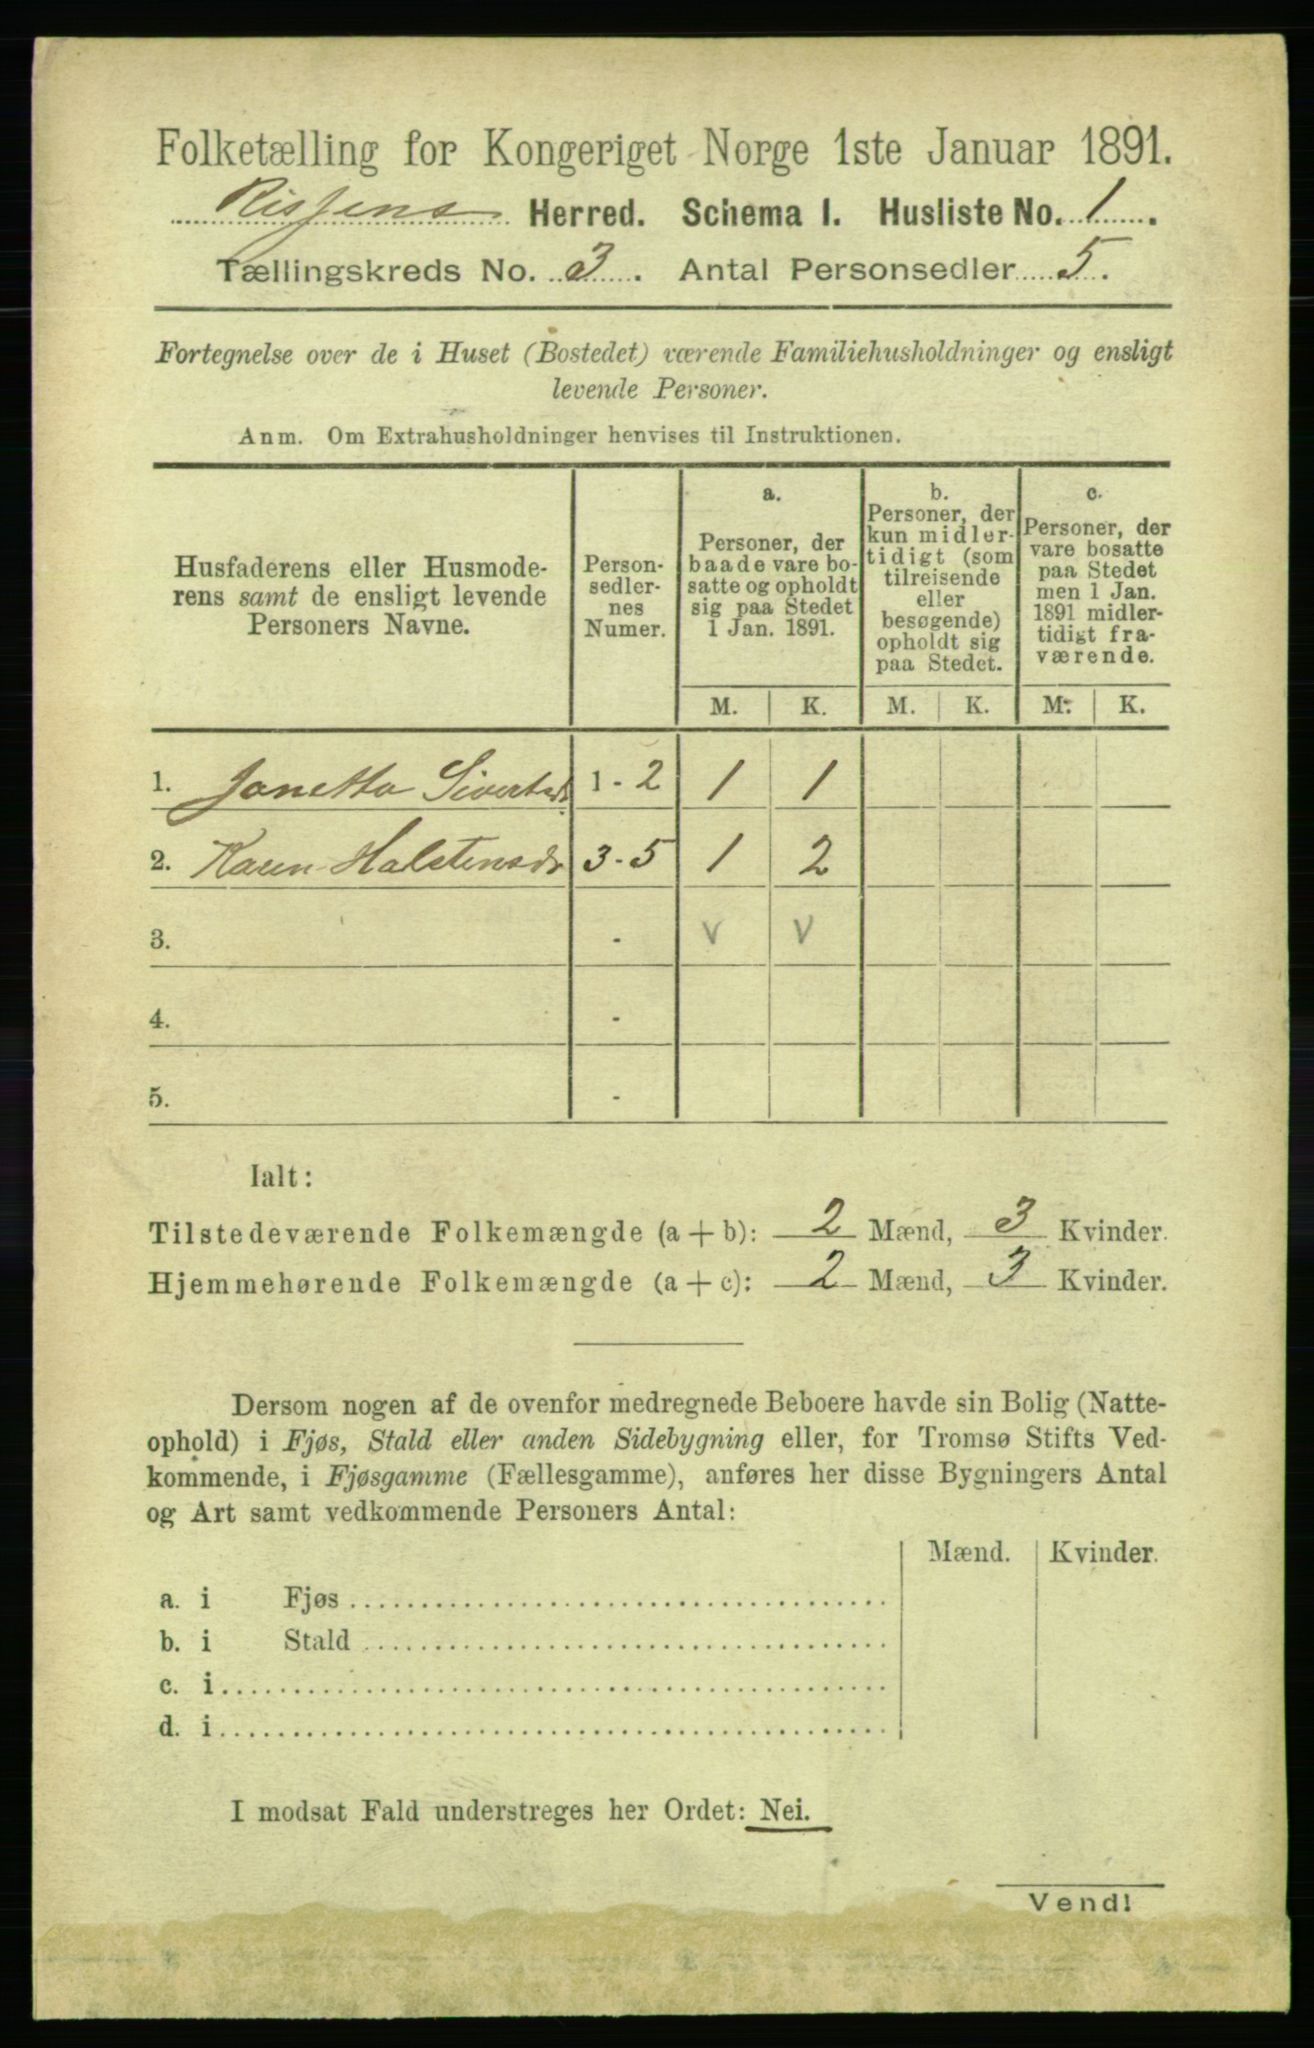 Folketælling for Kongeriget Norge 1ste Januar 1891.
Rissens Herred. Schema I. Husliste No. 1.
Tællingskreds No. 3. Antal Personsedler 5.
Fortegnelse over de i Huset (Bostedet) værende Familiehusholdninger og ensligt
levende Personer.
Anm. Om Extrahusholdninger henvises til Instruktionen.
Husfaderens eller Husmode-
rens samt de ensligt levende
Personers Navne.
Person-
sedler-
nes
Numer.
a.
Personer, der
baade vare bo-
satte og opholdt
sig paa Stedet
1 Jan. 1891.
b.
Personer, der
kun midler-
tidigt (som
tilreisende
eller
besøgende)
opholdt sig
paa Stedet.
c.
Personer, der
vare bosatte
paa Stedet
men 1 Jan.
1891 midler-
tidigt fra-
værende.
M. K. M. K. M. K.
1. Janetta Sivertsd. 1 - 2 1 1
2. Karen Halstensdr 3 - 5 1 2
3. - V V
4. -
5. -
Ialt:
Tilstedeværende Folkemængde (a + b): 2 Mænd, 3 Kvinder.
Hjemmehørende Folkemængde (a + c): 2 Mænd, 3 Kvinder.
Dersom nogen af de ovenfor medregnede Beboere havde sin Bolig (Natte-
ophold) i Fjøs, Stald eller anden Sidebygning eller, for Tromsø Stifts Ved-
kommende, i Fjøsgamme (Fællesgamme), anføres her disse Bygningers Antal
og Art samt vedkommende Personers Antal:
Mænd. Kvinder.
a. i Fjøs
b. i Stald
c. i
d. i
I modsat Fald understreges her Ordet: Nei.
Vend!